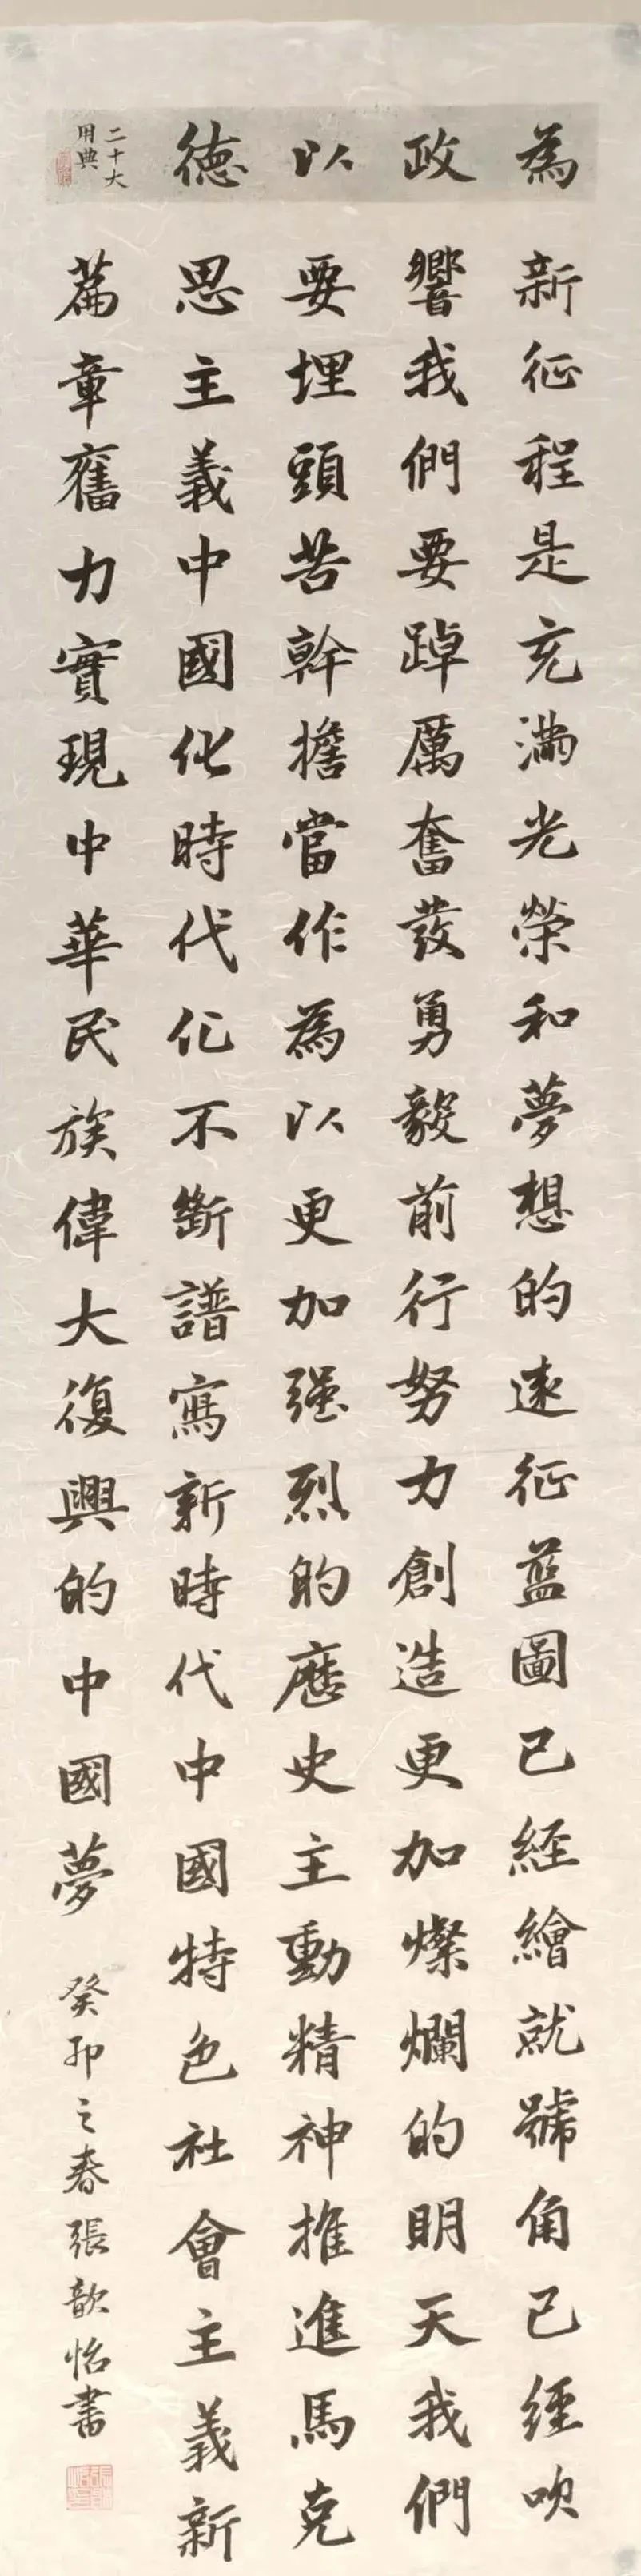 為政以德
二十大
用典
新征程是充滿光榮和夢想的遠征藍圖已經繪就號角已經吹
響我們要踔厲奮發勇毅前行努力創造更加燦爛的明天我們
要埋頭苦幹擔當作為以更加强烈的歷史主動精神推進馬克
思主義中國化時代化不斷譜寫新時代中國特色社會主義新
篇章奮力實現中華民族偉大復興的中國夢
癸卯之春張歆怡書